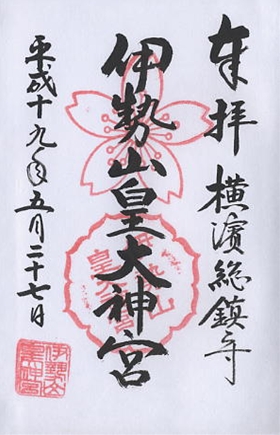 奉拝 横濱総鎮守
伊勢山皇大神宮
平成十九年五月二十七日
伊勢山
皇大神宮